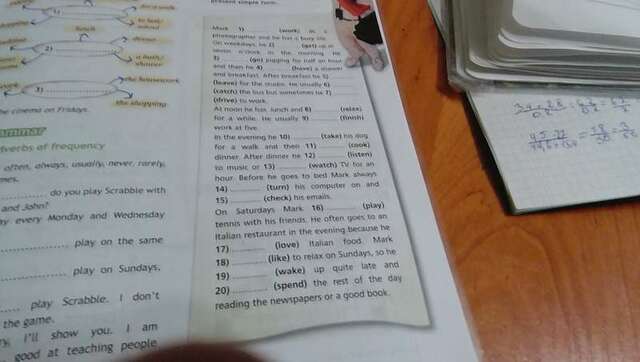 present simple form.
Mark 1) (work) as a
photographer and he has a busy life.
On weekdays, he 2) (get) up at
seven o'clock in the morning. He
3) (go) jogging for half an hour
and then he 4) (have) a shower
and breakfast. After breakfast he 5)
(leave) for the studio. He usually 6)
(catch) the bus but sometimes he 7)
(drive) to work.
At noon he has lunch and 8) (relax)
for a while. He usually 9) (finish)
work at five.
In the evening he 10) (take) his dog
for a walk and then 11) (cook)
dinner. After dinner he 12) (listen)
to music or 13) (watch) TV for an
hour. Before he goes to bed Mark always
14) (turn) his computer on and
15) (check) his emails.
On Saturdays Mark 16) (play)
tennis with his friends. He often goes to an
Italian restaurant in the evening because he
17) (love) Italian food. Mark
18) (like) to relax on Sundays, so he
19) (wake) up quite late and
20) (spend) the rest of the day
reading the newspapers or a good book.
lunch
dinner
the housework
the shopping
the cinema on Fridays.
adverbs of frequency
often, always, usually, never, rarely,
do you play Scrabble with
and John?
every Monday and Wednesday
play on the same
play on Sundays,
play Scrabble. I don't
the game.
I'll show you. I am
good at teaching people